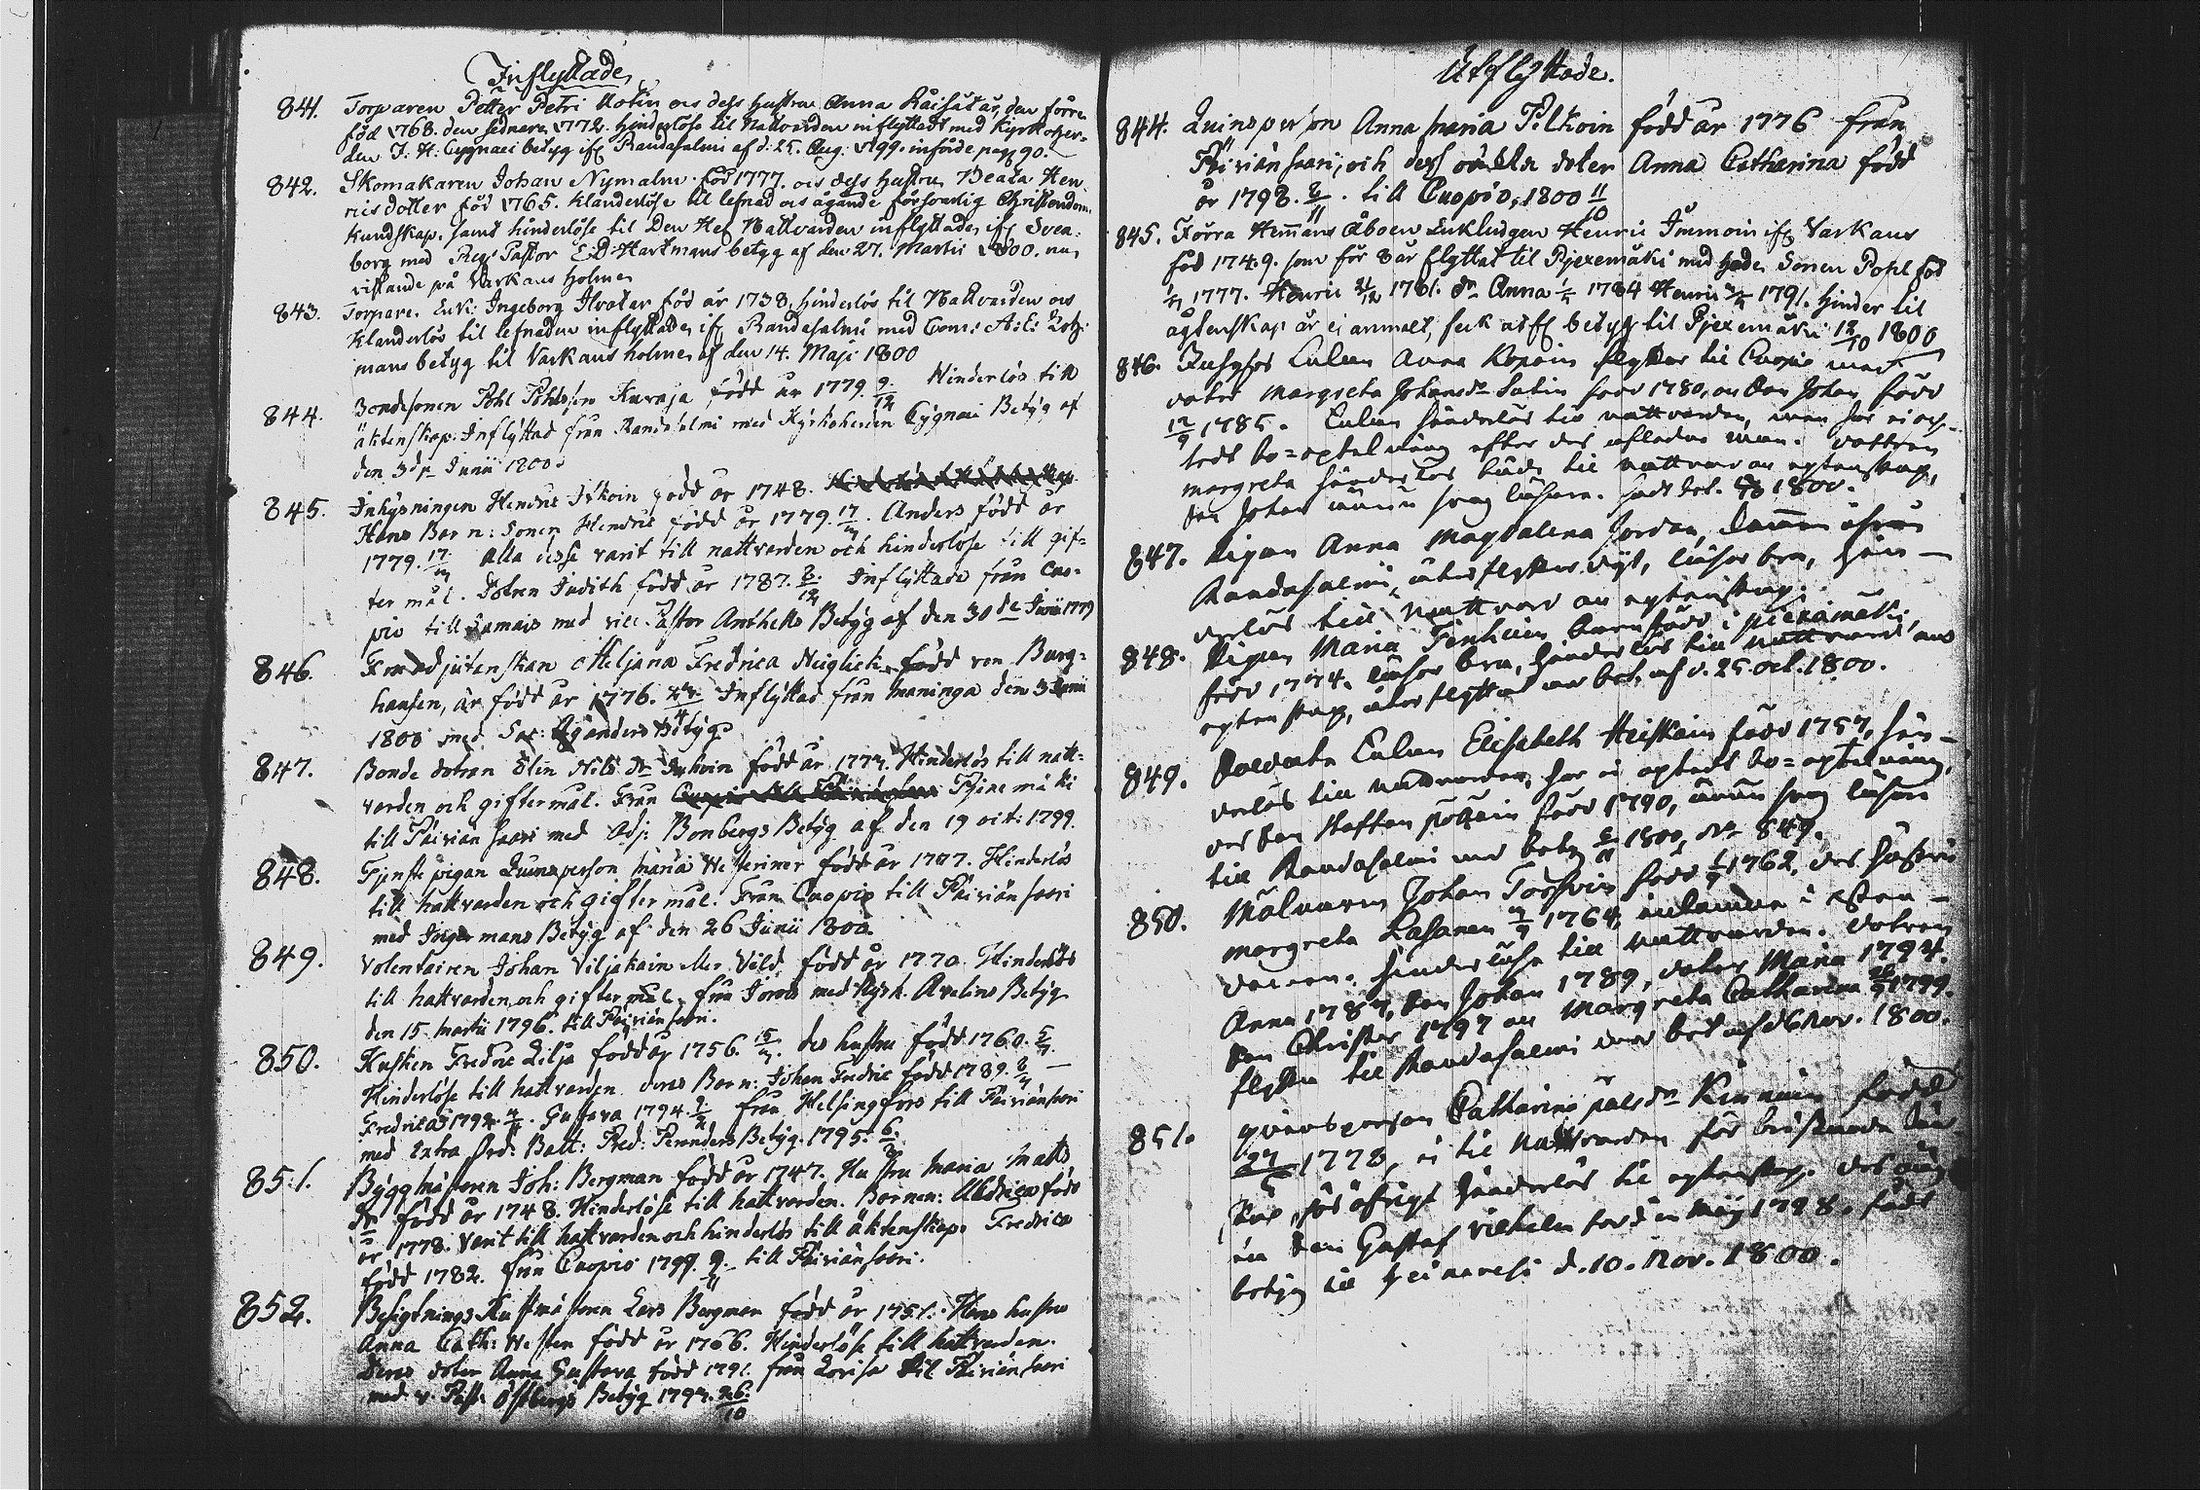 Inflyttade
841. Torparen Petter Petri Kotin ocs dess hustru Anna Räisätär, den förre
föd 1768. den sednare 1772. hinderlöse til Nattvarden inflyttade med Kyrkoher-
den J. H. Cygnaei betyg ifr Randasalmi af d. 25. Aug. 1799. införde pag. 90.
842. Skomakaren Johan Nymalm föd 1777. ocs dess hustru Beata Hen-
rics dotter föd 1765. klanderlöse til lefnad ocs ägande försvarlig Christendoms
kundskap. samt hinderlöse til Den Hel. Nattvarden inflyttade ifr Svea-
borg med Reg: Pastor E. D. Hartmans betyg af den 27. Martii 1800. nu
vistande på Varkaus holmen
843. Torpare. Enk: Ingeborg Ilvatar föd år 1738. hinderlös til Nattvarden ocs
klanderlös til lefnaden inflyttade ifr Randasalmi med Com: A: E:
mans betyg til Varkaus holmen af den 14. Maji 1800
844. Bondesonen Pohl Pohlsson Kuvaja född år 1779. 9/12 Hinderlös till
äktenskap. Inflyttad från Randasalmi med Kyrkoherden Cygnaei Betyg af
den 3dje Junii 1800.
845. Inhysningen Hendric Iskoin född år 1748.
Hans Barn: Sonen Hendric född år 1779. 17/ . Anders född år
1779. 17/ Alla desse varit till nattvarden och hinderlöse till gif-
ter mål. Dotren Judith född år 1787. 8/12 Inflyttade från Cuo-
pio till Samais med vice Pastor Anthells Betyg af den 30de Junii 1799
846. Fru Adjutenskan Heljana Fredrica född von Burg-
hausen, är född år 1776. Inflyttad från Maninga den 3 Junii
1800 med Sac: Betyg
847. Bonde dotren Elin Nils dr född år 1777. Hinderlös till natt-
varden och giftermål. Från Pjexemäki
till Päiviänsaari med Adj: Bonbergs Betyg af den 19 oct: 1799.
848. Tjenste pigan Quinsperson Maria född år 1777. Hinderlös
till nattvarden och giftermål. Från Cuopio till Päiviänsaari
med Ingmans Betyg af den 26 Junii 1800
849. Volentairen Johan Viljakain född år 1770. Hinderlös
till nattvarden och giftermål. från Jorois med Kyrk. Avelins Betyg
den 15. Martii 1796. till Päiviänsaari.
850. Kusken Fredric Lilja född år 1756. 15/ . des hustru född 1760. 5/7.
Hinderlöse till nattvarden deras Barn: Johan Fredric född 1789. 8/7 —
Fredrica 1792. Gustava 1794. från Helsingfors till Päiviänsaari
med Extra Ord: Batt: Pred: Betyg. 1795. 6/8
851. Byggmästaren Joh: Bergman född år 1747. Hustru Maria Matts
dr född år 1748. Hinderlöse till nattvarden. Barnen: Uldrica född
år 1778. Varit till nattvarden och hinderlös till äktenskap. Fredrica
född 1782. från Cuopio 1799. 9/11 till Päiviänsaari.
852. Besigtnings Rustmästaren Lars Bergman född år 1751. Hans hustru
Anna Cath: Westen född år 1766. Hinderlöse till nattvarden.
Deras dotter Anna Gustava född 1791. från Lovisa till Päiviänsaari
med v. Past: Östbergs Betyg 1797. 26/10
Utflyttade.
844. Quinsperson Anna Maria Pelkoin född år 1776 från
Päiviänsaari, och dess oäkta doter Anna Catharina född
år 1798. 8/11. till Cuopio, 1800 11/10
845. Förra Hemmans Åboen Enklingen Henric Immoin ifr Varkaus
föd 1749. som för 8 år flyttat til Pjexemäki med hade Sonen Pohl föd
1777. Henric 21/12 1781. dr Anna 1784 Henric 1791. hinder til
ägtenskap är ei anmält, fick atfl betyg til Pjexemäki 12/10 1800
846. Enkan Anna Kopoin flyttar til Cuopio med
dotr Margreta Johansdr född 1780, och son Johan född
12/9 1785. Enkan hinderlös till nattvarden, men har ei
bo-uptekning efter des afledne man. dottren
Margreta hinderlös både til nattvard och egtenskap,
son Johan ännu svag läsare. 1800.
847. Pigan Anna Magdalena Jordan,
Randasalmi, återflyttar dijt, läser bra, hin-
derlös till Nattvard och egtenskap.
848. Pigan Maria barnfödd i Piexämäki,
född 1774. läser bra, hinderlös til nattvard och
egtenskap, återflyttat med bet. af d. 25 oct. 1800.
849. Soldats Enkan Elisabeth Heiskain född 1757, hin-
derlös till nattvarden, har ei uptedt bo-uptekning,
och son Staffan född 1790, ännu svag läsare
till Randasalmi med betyg 6/11 1800, No 849.
850. Målaren Johan född 1/9 1762, des hustru
Margreta Lasanen 1764, inlemnade i
Hinderlöse till nattvarden. dotren
Anna 1787, son Johan 1789, doter Maria 1794.
son Christer 1797 och Margreta Catharina 1799.
flytta til Randasalmi med bet af d 6 Nov. 1800.
851. Qvinsperson Catharina Påls dr Kinnuin född
1778, ei til Nattvarden för bristande kun-
skap, för öfrigt hinderlös til egtenskap. Des oägta
son Gustaf Vilhelm född i Maij 1798. fådt
betyg til d. 10. Nov. 1800.